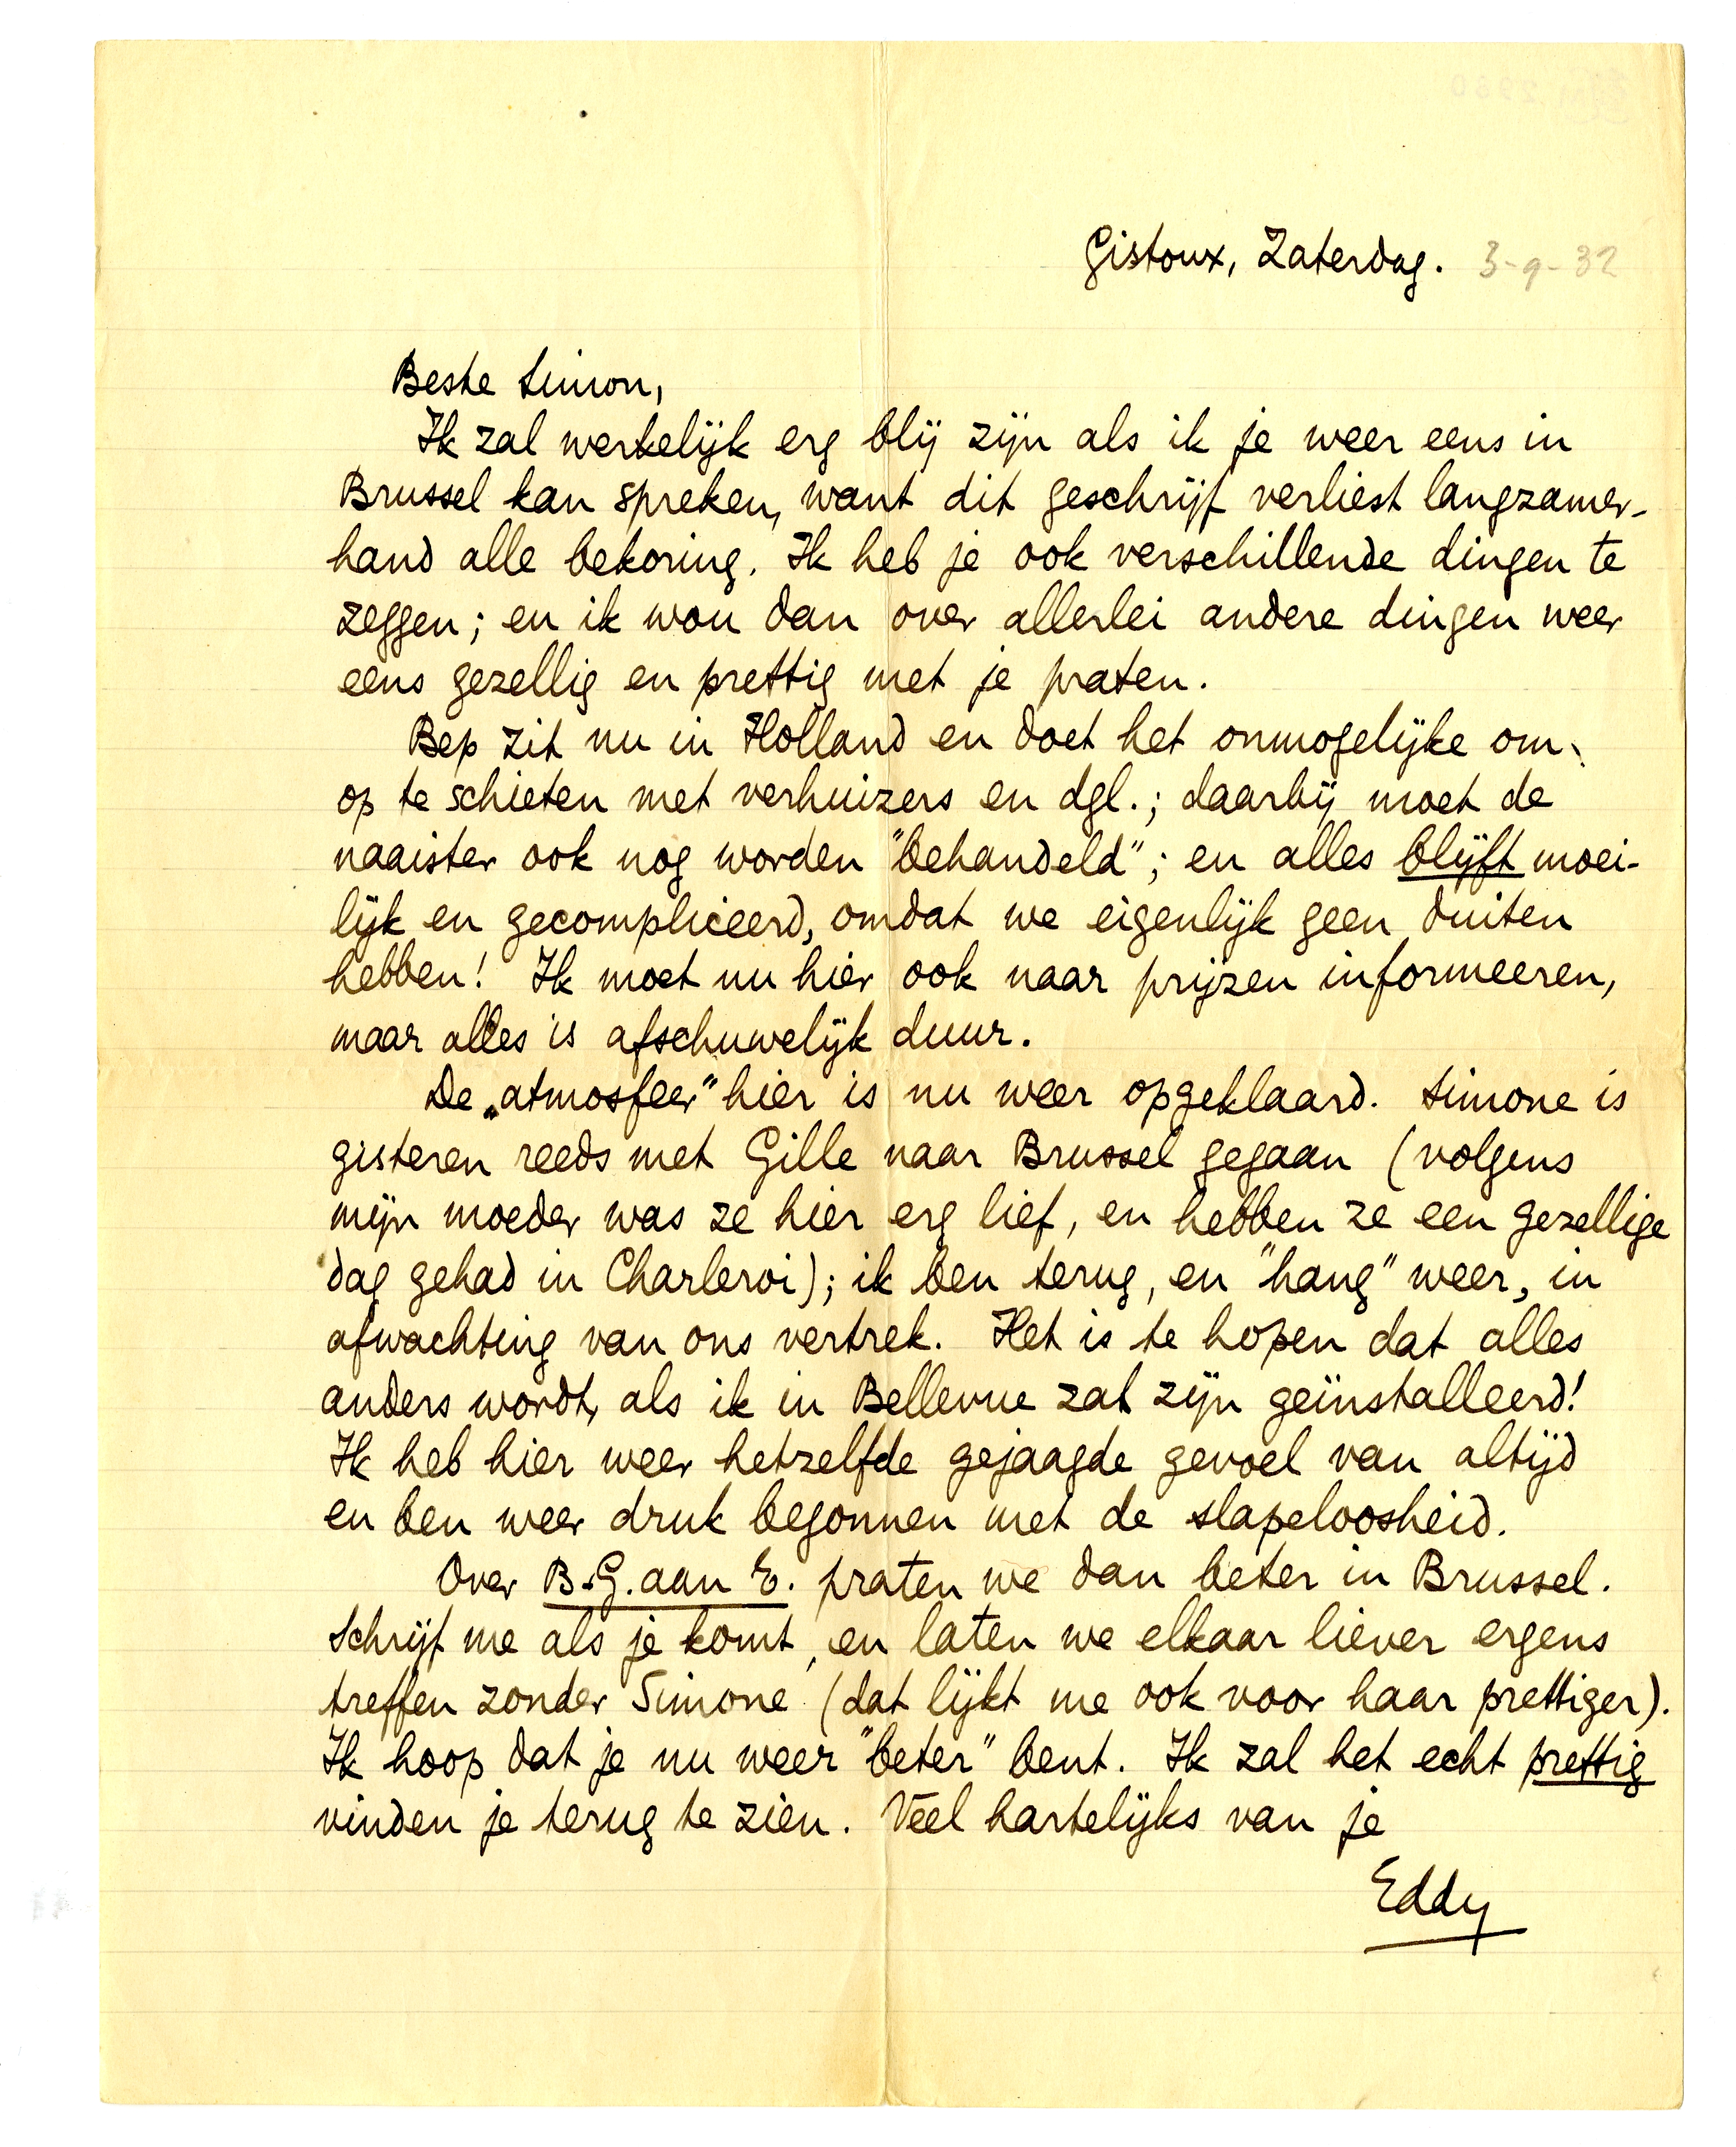 Gistoux, Zaterdag. 3-9-32
Beste Simon,
Ik zal werkelijk erg blij zijn als ik je weer eens in
Brussel kan spreken, want dit geschrijf verliest langzamer-
hand alle bekoring. Ik heb je ook verschillende dingen te
zeggen; en ik wou dan over allerlei andere dingen weer
eens gezellig en prettig met je praten.
Bep zit nu in Holland en doet het onmogelijke om
op te schieten met verhuizers en dgl.; daarbij moet de
naaister ook nog worden "behandeld"; en alles blijft moei-
lijk en gecompliceerd, omdat we eigenlijk geen duiten
hebben! Ik moet nu hier ook naar prijzen informeeren,
maar alles is afschuwelijk duur.
De „atmosfeer" hier is nu weer opgeklaard. Simone is
gisteren reeds met Gille naar Brussel gegaan (volgens
mijn moeder was ze hier erg lief, en hebben ze een gezellige
dag gehad in Charleroi); ik ben terug, en "hang" weer, in
afwachting van ons vertrek. Het is te hopen dat alles
anders wordt, als ik in Bellevue zal zijn geïnstalleerd!
Ik heb hier weer hetzelfde gejaagde gevoel van altijd
en ben weer druk begonnen met de slapeloosheid.
Over B.G. aan E. praten we dan beter in Brussel.
Schrijf me als je komt, en laten we elkaar liever ergens
treffen zonder Simone (dat lijkt me ook voor haar prettiger).
Ik hoop dat je nu weer "beter" bent. Ik zal het echt prettig
vinden je terug te zien. Veel hartelijks van je
Eddy